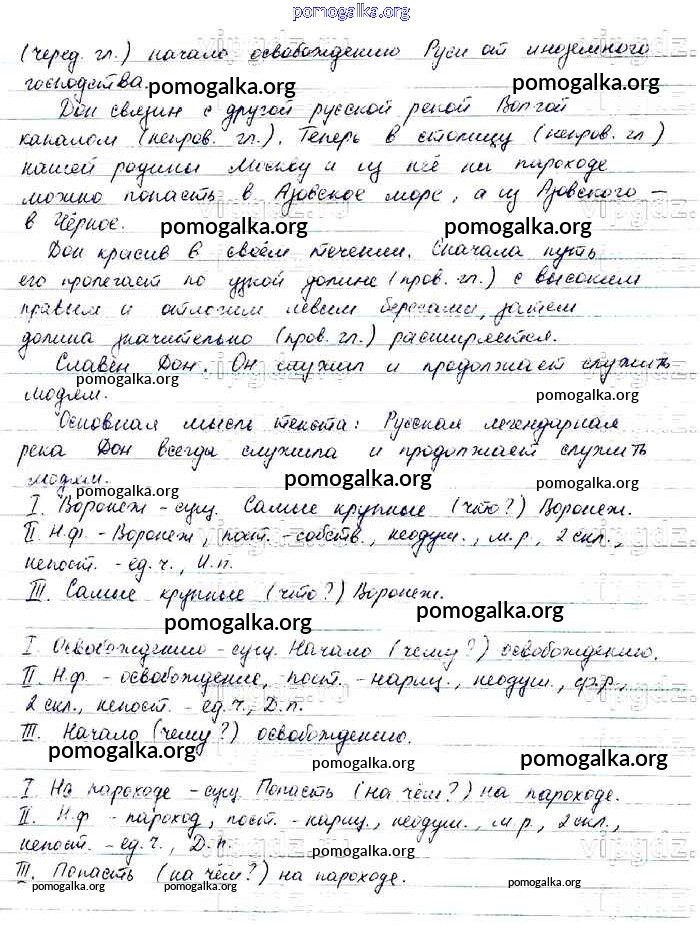 pomogalka.org
(черед. гл.) начало освобождению Руси от иноземного
господства.
pomogalka.org pomogalka.org
Дон связан с другой русской рекой Волгой
каналом (непров. гл.). Теперь в столицу (непров. гл)
нашей родины Москву и из неё на пароходе
можно попасть в Азовское море, а из Азовского –
в Чёрное.
pomogalka.org pomogalka.org
Дон красив в своём течении. Сначала путь
его пролегает по узкой долине (пров. гл.) с высоким
правым и отлогим левым берегами, затем
долина значительно (пров. гл.) расширяется.
Славен Дон. Он служил и продолжает служить
людям.
pomogalka.org pomogalka.org
Основная мысль текста: Русская легендарная
река Дон всегда служила и продолжает служить
людям.
pomogalka.org pomogalka.org
I. Воронеж – сущ. Самые крупные (что?) Воронеж.
II Н.ф. – Воронеж, пост. – собств., неодуш., м.р., 2 скл.,
непост. – ед.ч., И.п.
pomogalka.org
III. Самые крупные (что?) Воронеж.
pomogalka.org pomogalka.org
I. Освобождению – сущ. Начало (чему?) освобождению.
II Н.ф. – освобождение, пост. – нариц., неодуш., ср.р.,
2 скл., непост. – ед.ч., Д.п.
III. Начало (чему?) освобождению.
pomogalka.org pomogalka.org pomogalka.org
I. На пароходе – сущ. Попасть (на чём?) на пароходе.
II. Н.ф – пароход, пост. – нариц., неодуш., м.р., 2 скл.,
непост. – ед.ч., Д.п.
pomogalka.org
III. Попасть (на чём?) на пароходе.
pomogalka.org pomogalka.org pomogalka.org